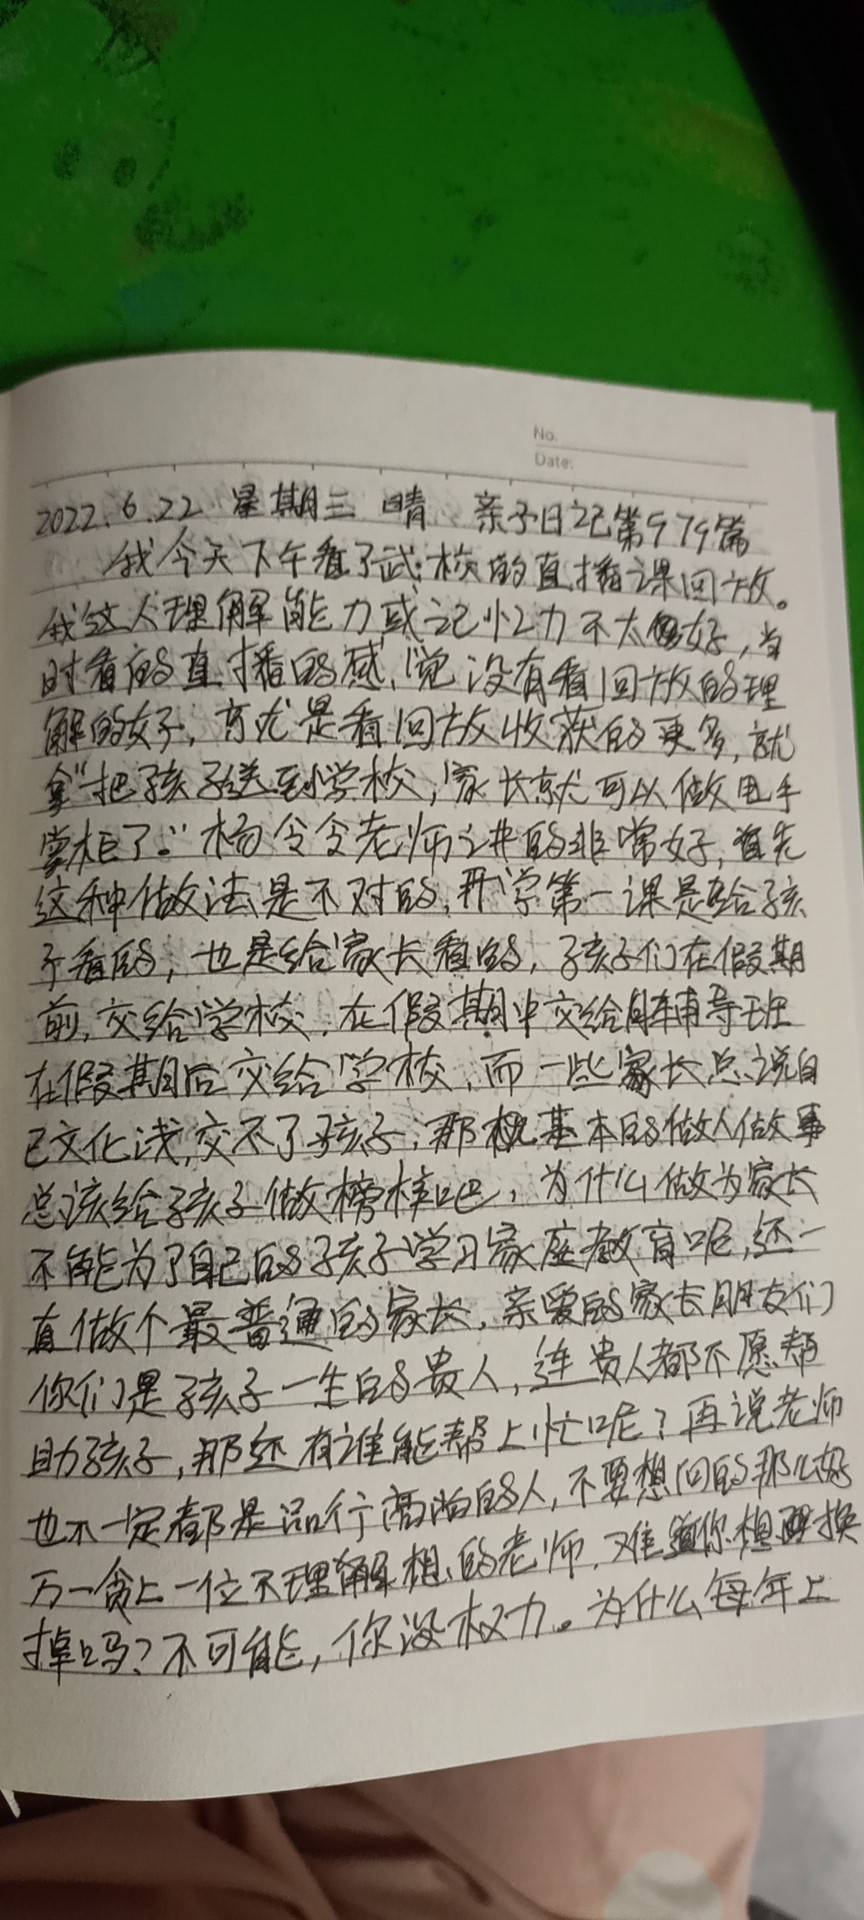 No.
Date:
2022.6.22 星期三 晴 亲子日记第979篇
我今天下午看了武校的直播课回放。
我这人理解能力或记忆力不太好，当
时看的直播的感觉没有看回放的理
解的好，尤是看回放收获的更多，就
拿“把孩子送到学校，家长就可以做甩手
掌柜了。”杨令令老师讲的非常好，首先
这种做法是不对的，开学第一课是给孩
子看的，也是给家长看的，孩子们在假期
前，交给学校，在假期中交给辅导班
在假期后交给学校，而一些家长总说自
己文化浅，交不了孩子，那基本的做人做事
总该给孩子做榜样吧，为什么做为家长
不能为了自己的孩子学习家庭教育呢，还一
直做个最普通的家长，亲爱的家长朋友们
你们是孩子一生的贵人，连贵人都不愿帮
助孩子，那还有谁能帮上忙呢？再说老师
也不一定都是品行高尚的人，不要想的那么好
万一贪上一位不理想的老师，难道你想换
掉吗？不可能，你没权力。为什么每年上